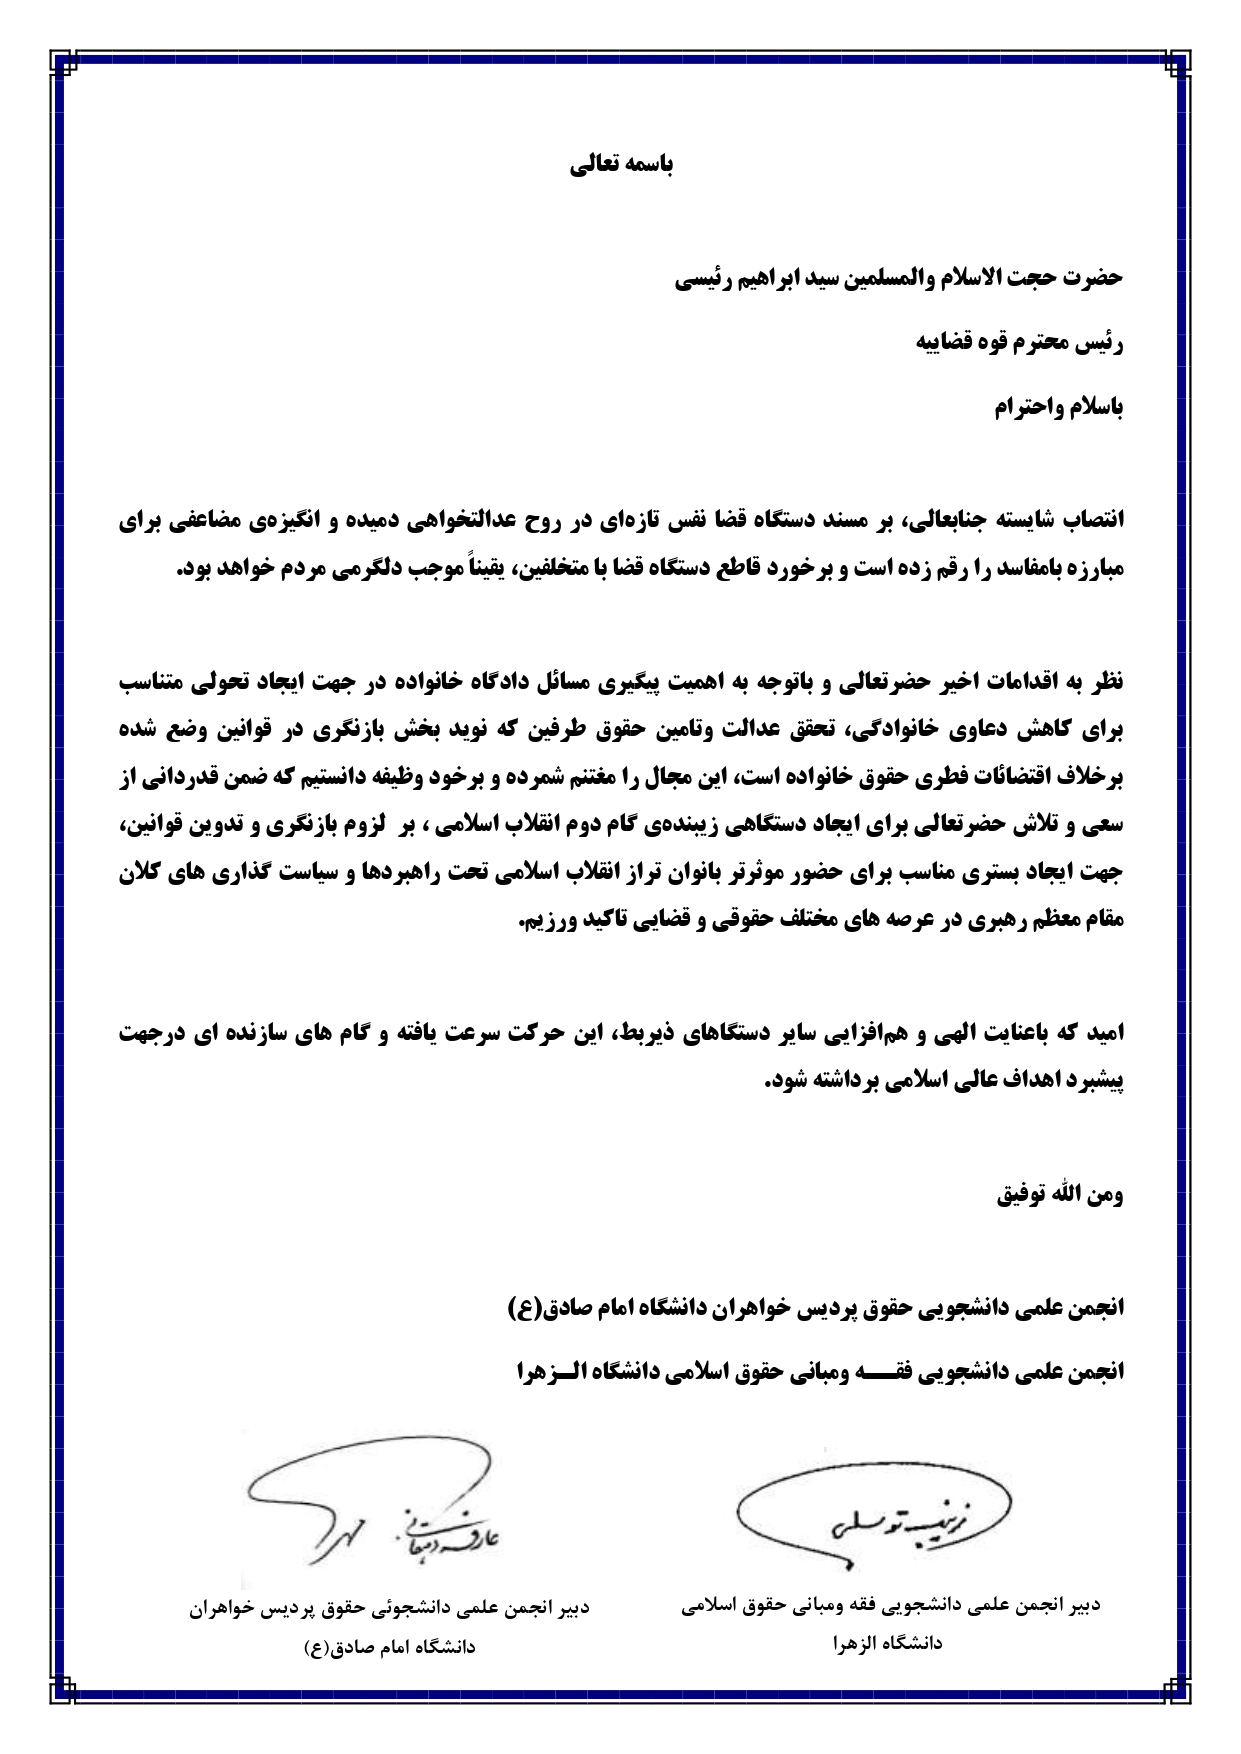 باسمه تعالی
حضرت حجت الاسلام والمسلمین سید ابراهیم رئیسی
رئیس محترم قوه قضاییه
باسلام واحترام
انتصاب شایسته جنابعالی، بر مسند دستگاه قضا نفس تازه‌ای در روح عدالتخواهی دمیده و انگیزه‌ی مضاعفی برای
مبارزه بامفاسد را رقم زده است و برخورد قاطع دستگاه قضا با متخلفین، یقیناً موجب دلگرمی مردم خواهد بود.
نظر به اقدامات اخیر حضرتعالی و باتوجه به اهمیت پیگیری مسائل دادگاه خانواده در جهت ایجاد تحولی متناسب
برای کاهش دعاوی خانوادگی، تحقق عدالت وتامین حقوق طرفین که نوید بخش بازنگری در قوانین وضع شده
برخلاف اقتضائات فطری حقوق خانواده است، این مجال را مغتنم شمرده و برخود وظیفه دانستیم که ضمن قدردانی از
سعی و تلاش حضرتعالی برای ایجاد دستگاهی زیبنده‌ی گام دوم انقلاب اسلامی ، بر لزوم بازنگری و تدوین قوانین،
جهت ایجاد بستری مناسب برای حضور موثرتر بانوان تراز انقلاب اسلامی تحت راهبردها و سیاست گذاری های کلان
مقام معظم رهبری در عرصه های مختلف حقوقی و قضایی تاکید ورزیم.
امید که باعنایت الهی و هم‌افزایی سایر دستگاهای ذیربط، این حرکت سرعت یافته و گام های سازنده ای درجهت
پیشبرد اهداف عالی اسلامی برداشته شود.
ومن الله توفیق
انجمن علمی دانشجویی حقوق پردیس خواهران دانشگاه امام صادق(ع)
انجمن علمی دانشجویی فقـــه ومبانی حقوق اسلامی دانشگاه الــزهرا
زینب توسلی
عارفه دهقانی
دبیر انجمن علمی دانشجویی فقه ومبانی حقوق اسلامی
دانشگاه الزهرا
دبیر انجمن علمی دانشجوئی حقوق پردیس خواهران
دانشگاه امام صادق(ع)